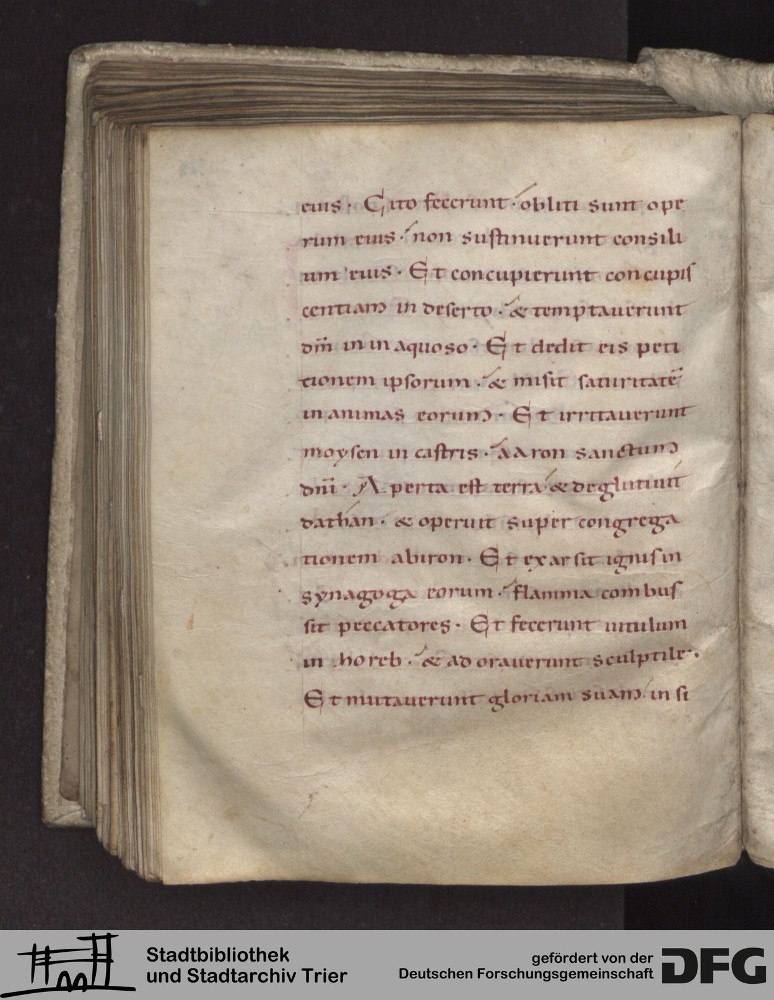 eius · Cito fecerunt · obliti sunt ope
rum eius · non sustinuerunt consili
um eius · Et concupierunt concupis
centiam in deserto · & temptauerunt
dm̅ in inaquoso · Et dedit eis peti
tionem ipsorum · & misit saturitatē
in animas eorum · Et irritauerunt
moysen in castris · aaron sanctum
dn̅i · Aperta est terra & deglutiuit
dathan · & operuit super congrega
tionem abiron · Et exarsit ignis in
synagoga eorum · flamma combus
sit peccatores · Et fecerunt uitulum
in horeb · & adorauerunt sculptile ·
Et mutauerunt gloriam suam in si
Stadtbibliothek
und Stadtarchiv Trier
gefördert von der
Deutschen Forschungsgemeinschaft
DFG